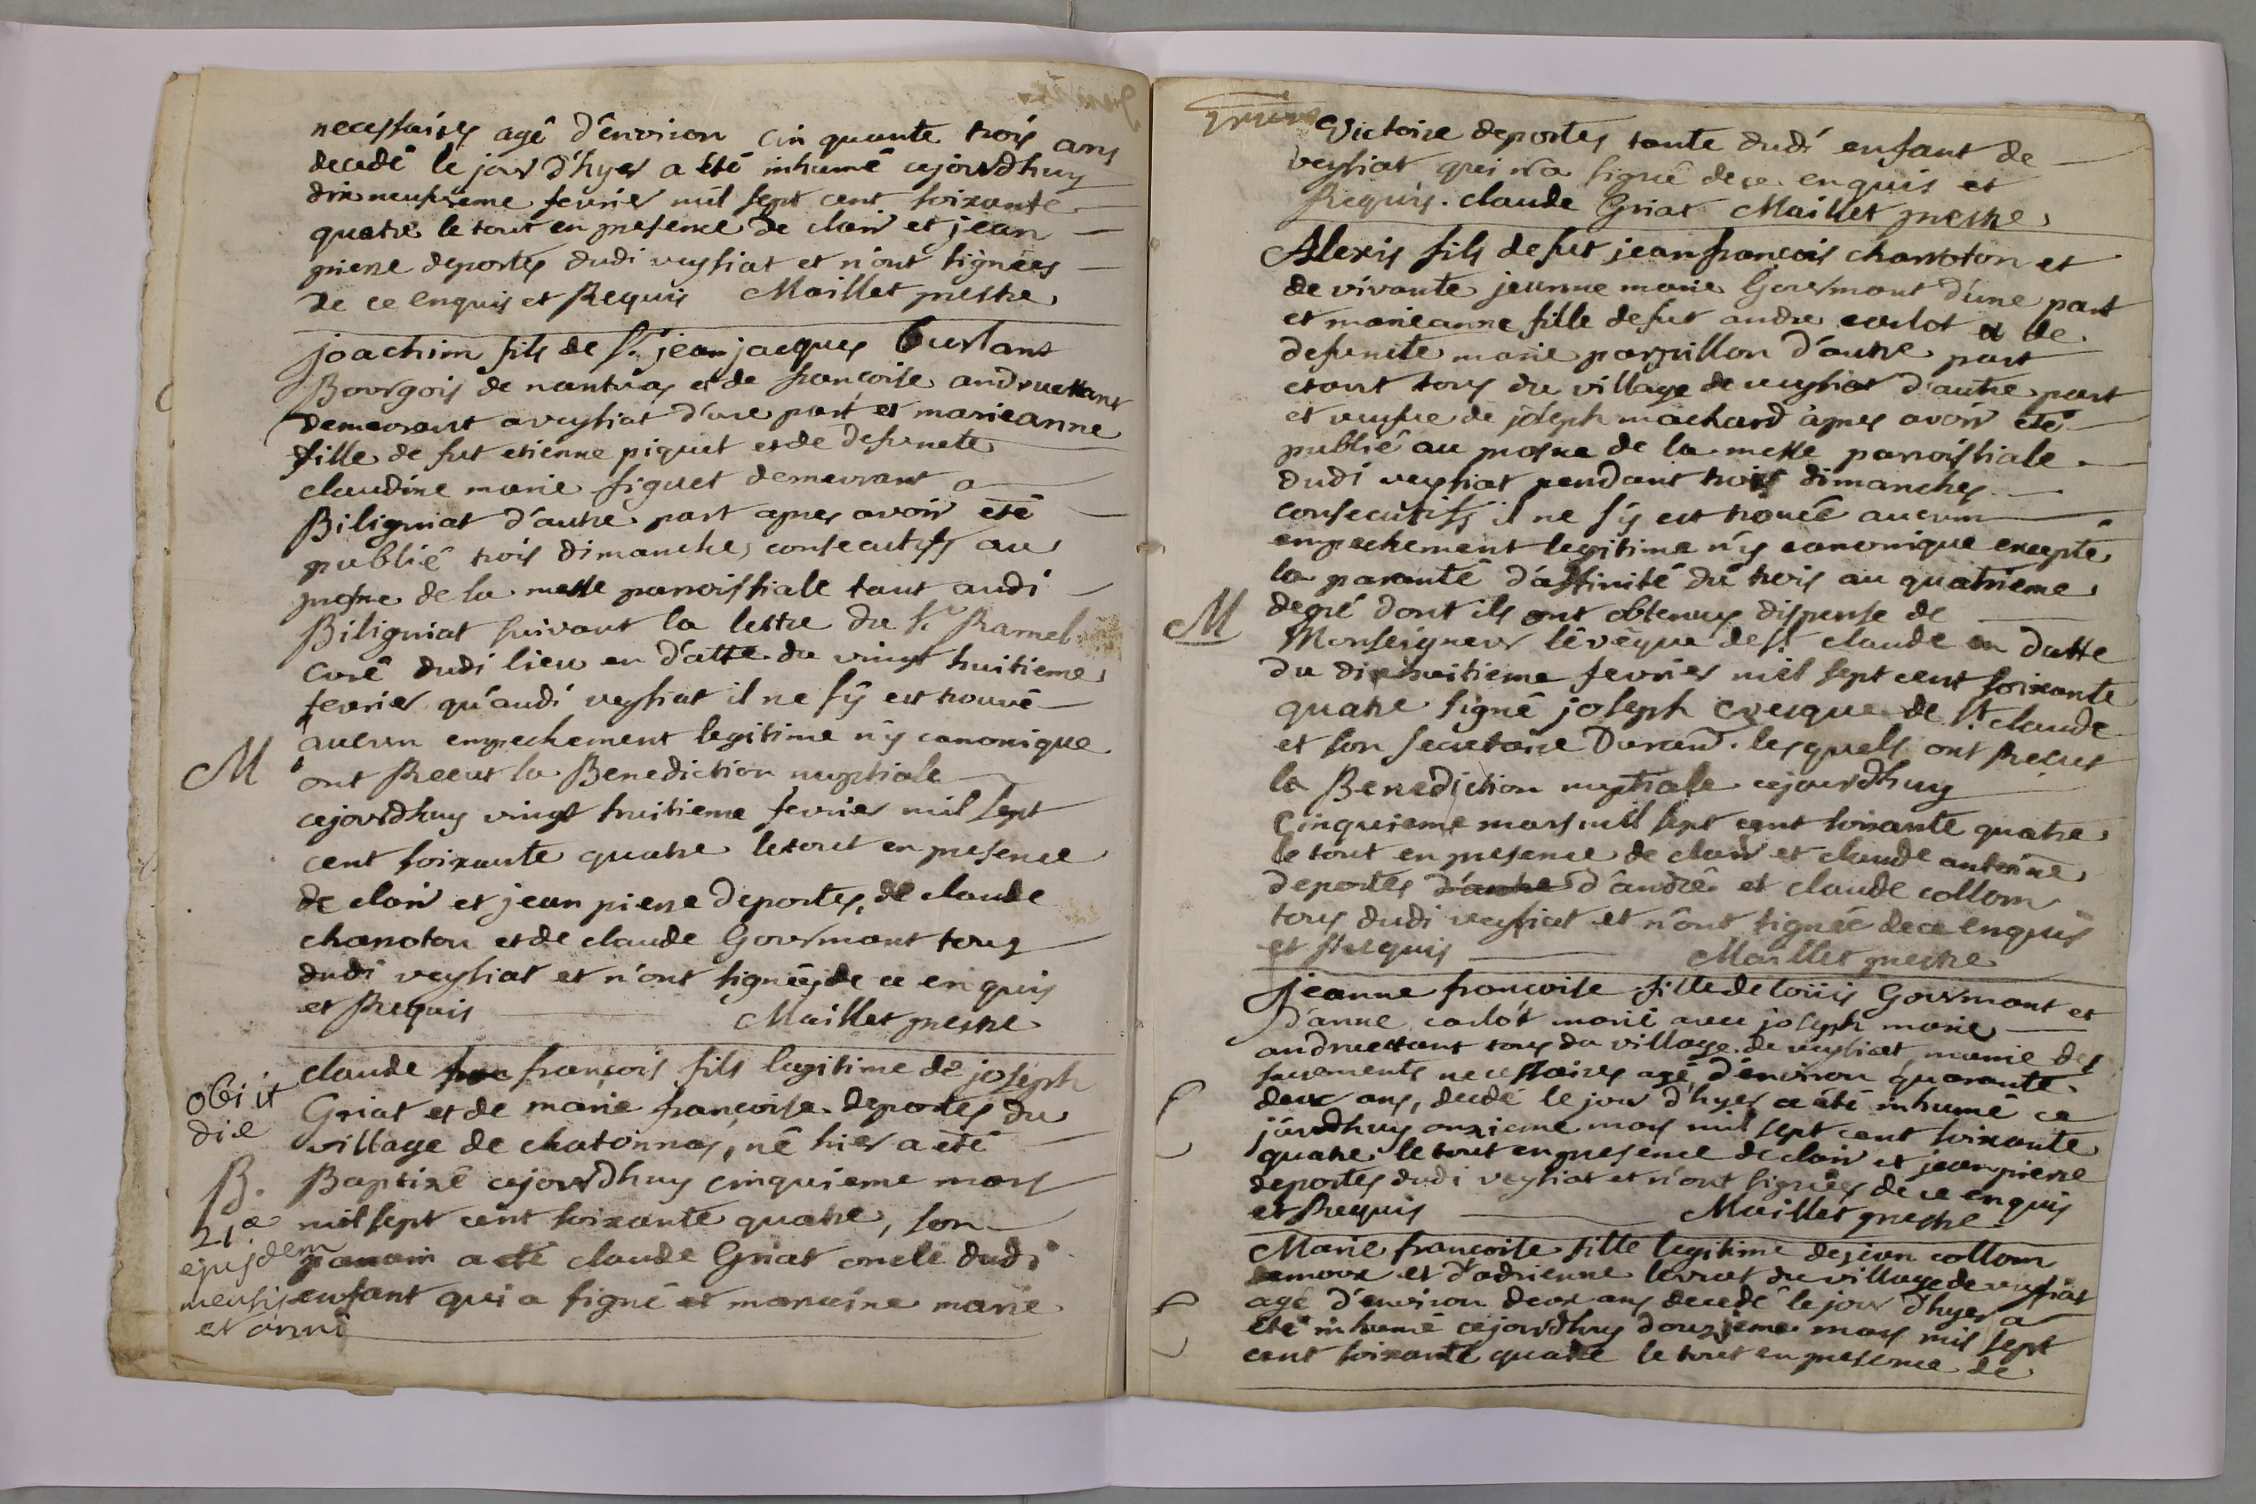 necessaires agê d'environ cin quante trois ans
decedê le jour d'hyer a été inhumê cejourdhuy
dixneufieme fevrier mil sept cent soixante
quatre le tout en presence de clair et jean
pierre deportes dudi veysiat et n'ont signées
de ce enquis et Requis Maillet prestre
joachim fils de sr. jean jacques Burlant
Bourgois de nantuas et de françoise andruettant
demeurant a veysiat d'une part et marieanne
fille de fut etienne piquet et de defuncte
claudine marie figuet demeurant a
Biligniat d'autre part apres avoir eté
publié trois dimanches consecutifs au
prosne de la messe parroissiale tant audi
Biligniat suivant la lettre du sr. Ramel
curê dudi lieu en d'atte du vingt huitieme
fevrier qu'audi veysiat il ne s'y est trouvé
aucun empechement legitime n'y canonique
M
ont Receut la Benediction nuptiale
cejourdhuy vingt huitieme fevrier mil sept
cent soixante quatre le tout en presence
de clair et jean pierre deportes, de claude
charroton et de claude Gourmant tous
dudi veysiat et n'ont signées de ce en quis
et Requis Maillet prestre
claude françois fils legitime de joseph
obiit
die
Griat et de marie françoise deportes du
village de chatonnas, né hier a eté
B.
Baptizé cejourdhuy cinquieme mars
21a
mil sept cent soixante quatre, son
ejusdem
parrain a eté claude Griat oncle dudi
mensis
enfant qui a signé et marraine marie
et anni
victoire deportes tante dudi enfant de
veysiat qui n'a signé de ce enquis et
Requis. claude Griat Maillet prestre
Alexis fils de fut jean françois charroton et
de vivante jeanne marie Gourmant d'une part
et marieanne fille de fut andre carlot et de
defuncte marie parpillon d'autre part
etant tous du village de veysiat d'autre part
et veufve de joseph machard apres avoir eté
publié au prosne de la messe parroissiale
dudi veysiat pendant trois dimanches
consecutifs il ne s'y est trouvé aucun
empechement legitime n'y canonique excepté
la parantê d'affinité du trois au quatrieme
M
degré dont ils ont obtenus dispense de
Monseigneur lévêque de st. claude en datte
du dixhuitieme fevrier mil sept cent soixante
quatre signé joseph eveque de st. claude
et son secretaire Durand. lesquels ont Receut
la Benediction nuptiale cejourdhuy
Cinquieme mars mil sept cent soixante quatre
le tout en presence de clair et claude antoine
deportes d'autre d'andré et claude collom
tous dudi veysiat et n'ont signée de ce enquis
et Requis Maillet prestre
jeanne françoise fille de loüis Gourmant et
d'anne carlot marié avec joseph marie
andruettant tous du village de veysiat, munie des
sacrements necessaires agé d'environ quarante
deux ans, decedé le jour d'hyer a été inhumé ce
jourdhuy onzieme mars mil sept cent soixante
quatre le tout en presence de clair et jean pierre
deportes dudi veysiat et n'ont signées de ce enquis
et Requis Maillet prestre
Marie françoise fille legitime de jean collom
et d'adrienne levrat du village de veysiat
agé d'environ deux ans decedé le jour d'hyer a
été inhumé cejourdhuy douzieme mars mil sept
cent soixante quatre le tout en presence de